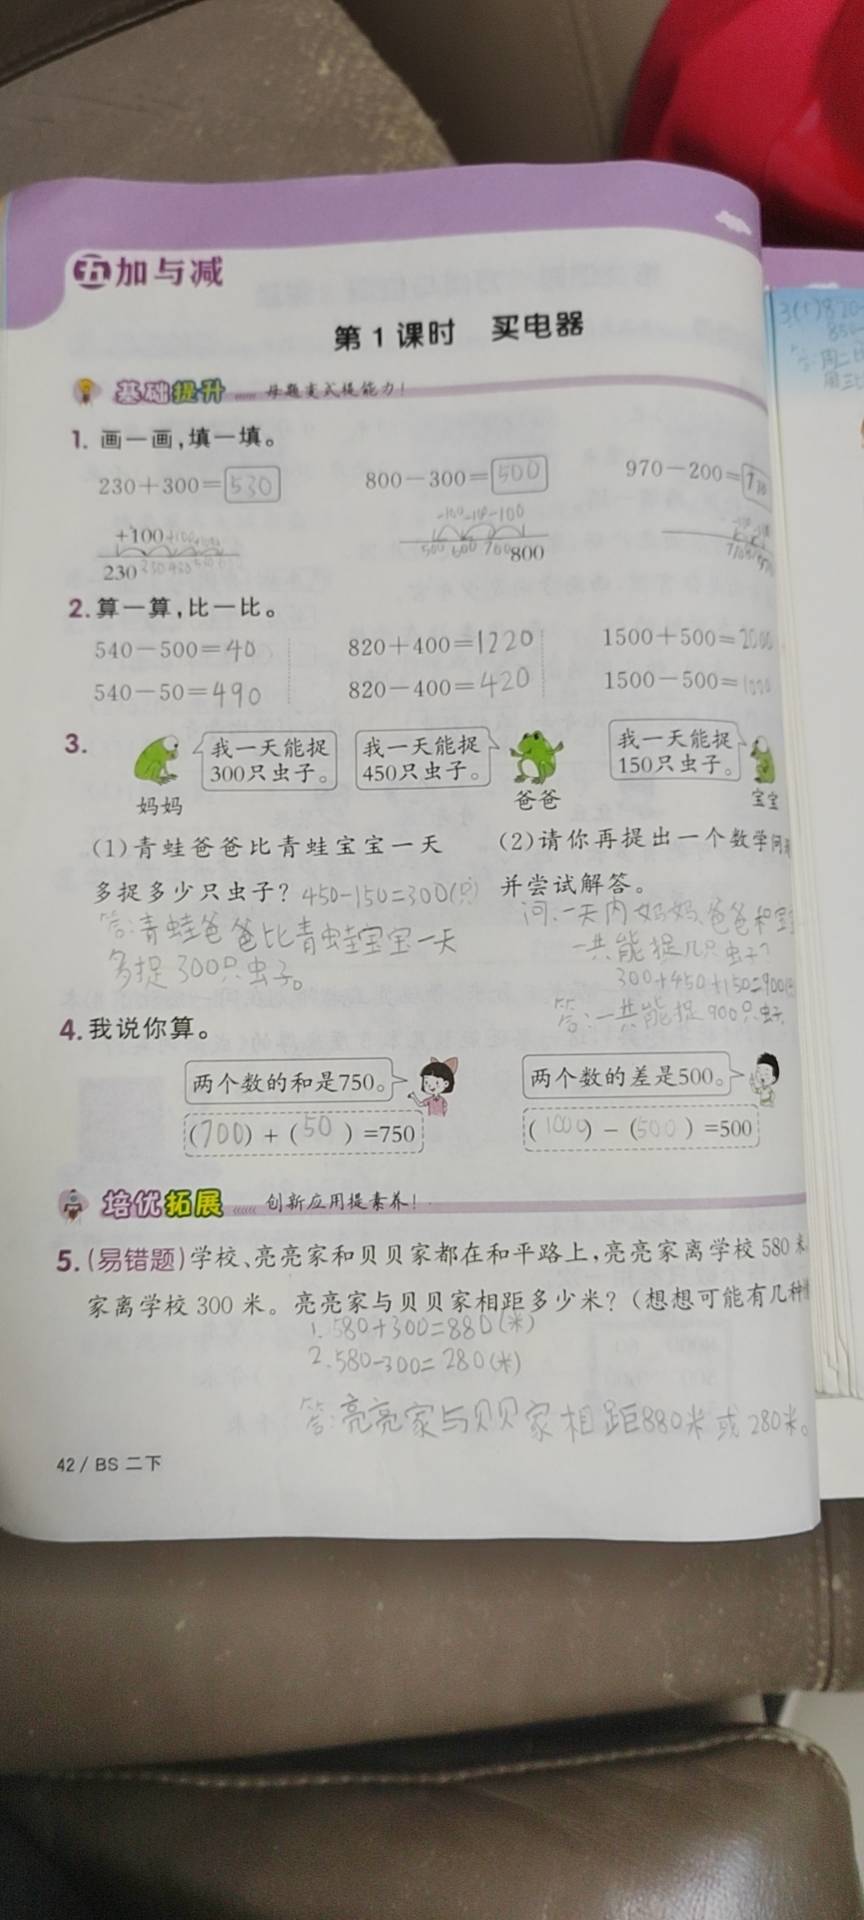 五 加与减
第1课时 买电器
基础提升 母题变式提能力！
1. 画一画，填一填。
230+300=530 800-300=500 970-200=
+100 +100 -100 -100
230 500 600 700 800
2. 算一算，比一比。
540-500=40 820+400=1220 1500+500=2000
540-50=490 820-400=420 1500-500=1000
3. 我一天能捉 我一天能捉 我一天能捉
300只虫子。 450只虫子。 150只虫子。
妈妈 爸爸 宝宝
(1)青蛙爸爸比青蛙宝宝一天
多捉多少只虫子？450-150=300(只)
答:青蛙爸爸比青蛙宝宝一天
多捉300只虫子。
(2)请你再提出一个数学问
并尝试解答。
问:一天内妈妈、爸爸和
一共能捉几只虫子?
300+450+150=900
答:一共能捉900只虫子
4. 我说你算。
两个数的和是750。 两个数的差是500。
(700)+(50)=750 (1000)-(500)=500
培优拓展 创新应用提素养！
5. (易错题)学校、亮亮家和贝贝家都在和平路上，亮亮家离学校580米
家离学校300米。亮亮家与贝贝家相距多少米？(想想可能有几种
1.580+300=880(米)
2.580-300=280(米)
答:亮亮家与贝贝家相距880米或280米。
42 / BS 二下